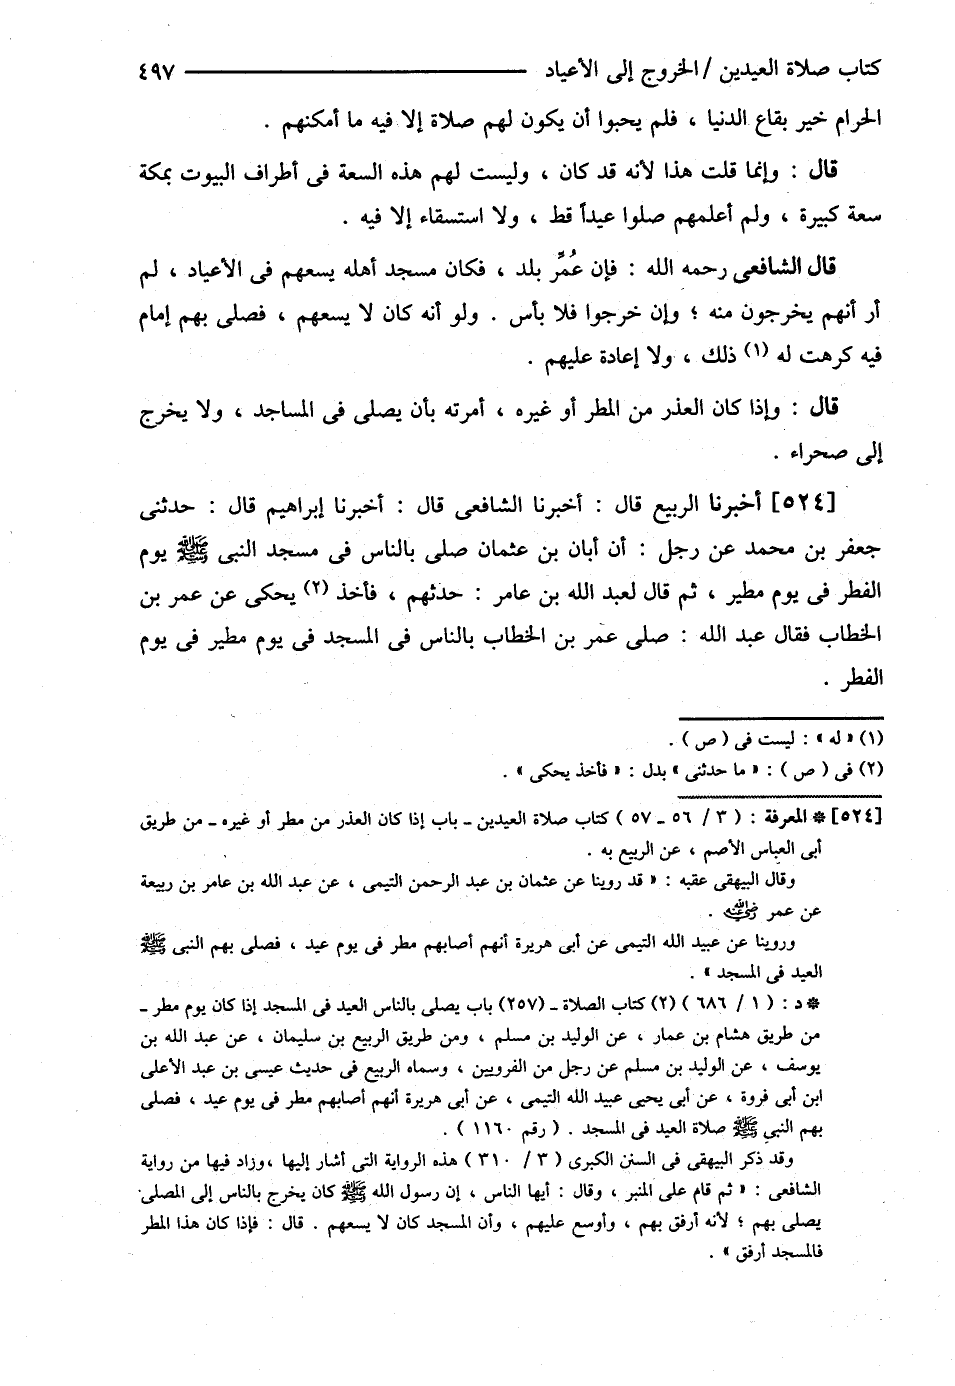 كتاب صلاة العيدين / الخروج إلى الأعياد ــــــ ٤٩٧
الحرام خير بقاع الدنيا ، فلم يحبوا أن يكون لهم صلاة إلا فيه ما أمكنهم .
قال : وإنما قلت هذا لأنه قد كان ، وليست لهم هذه السعة فى أطراف البيوت بمكة
سعة كبيرة ، ولم أعلمهم صلوا عيداً قط ، ولا استسقاء إلا فيه .
قال الشافعى رحمه الله : فإن عُمِّر بلد ، فكان مسجد أهله يسعهم فى الأعياد ، لم
أر أنهم يخرجون منه ؛ وإن خرجوا فلا بأس . ولو أنه كان لا يسعهم ، فصلى بهم إمام
فيه كرهت له (١) ذلك ، ولا إعادة عليهم .
قال : وإذا كان العذر من المطر أو غيره ، أمرته بأن يصلى فى المساجد ، ولا يخرج
إلى صحراء .
[٥٢٤] أخبرنا الربيع قال : أخبرنا الشافعى قال : أخبرنا إبراهيم قال : حدثنى
جعفر بن محمد عن رجل : أن أبان بن عثمان صلى بالناس فى مسجد النبى ﷺ يوم
الفطر فى يوم مطير ، ثم قال لعبد الله بن عامر : حدثهم ، فأخذ (٢) يحكى عن عمر بن
الخطاب فقال عبد الله : صلى عمر بن الخطاب بالناس فى المسجد فى يوم مطير فى يوم
الفطر .
(١) « له » : ليست فى ( ص ) .
(٢) فى ( ص ) : « ما حدثنى » بدل : « فأخذ يحكى » .
[٥٢٤] * المعرفة : ( ٣ / ٥٦ ـ ٥٧ ) كتاب صلاة العيدين ـ باب إذا كان العذر من مطر أو غيره ـ من طريق
أبى العباس الأصم ، عن الربيع به .
وقال البيهقى عقبه : « قد روينا عن عثمان بن عبد الرحمن التيمى ، عن عبد الله بن عامر بن ربيعة
عن عمر رضي الله عنه .
وروينا عن عبيد الله التيمى عن أبى هريرة أنهم أصابهم مطر فى يوم عيد ، فصلى بهم النبى ﷺ
العيد فى المسجد » .
* د : ( ١ / ٦٨٦ ) (٢) كتاب الصلاة ـ (٢٥٧) باب يصلى بالناس العيد فى المسجد إذا كان يوم مطر ـ
من طريق هشام بن عمار ، عن الوليد بن مسلم ، ومن طريق الربيع بن سليمان ، عن عبد الله بن
يوسف ، عن الوليد بن مسلم عن رجل من الفرويين ، وسماه الربيع فى حديث عيسى بن عبد الأعلى
ابن أبى فروة ، عن أبى يحيى عبيد الله التيمى ، عن أبى هريرة أنهم أصابهم مطر فى يوم عيد ، فصلى
بهم النبى ﷺ صلاة العيد فى المسجد . ( رقم ١١٦٠ ) .
وقد ذكر البيهقى فى السنن الكبرى ( ٣ / ٣١٠ ) هذه الرواية التى أشار إليها ، وزاد فيها من رواية
الشافعى : « ثم قام على المنبر ، وقال : أيها الناس ، إن رسول الله ﷺ كان يخرج بالناس إلى المصلى
يصلى بهم ؛ لأنه أرفق بهم ، وأوسع عليهم ، وأن المسجد كان لا يسعهم . قال : فإذا كان هذا المطر
فالمسجد أرفق » .